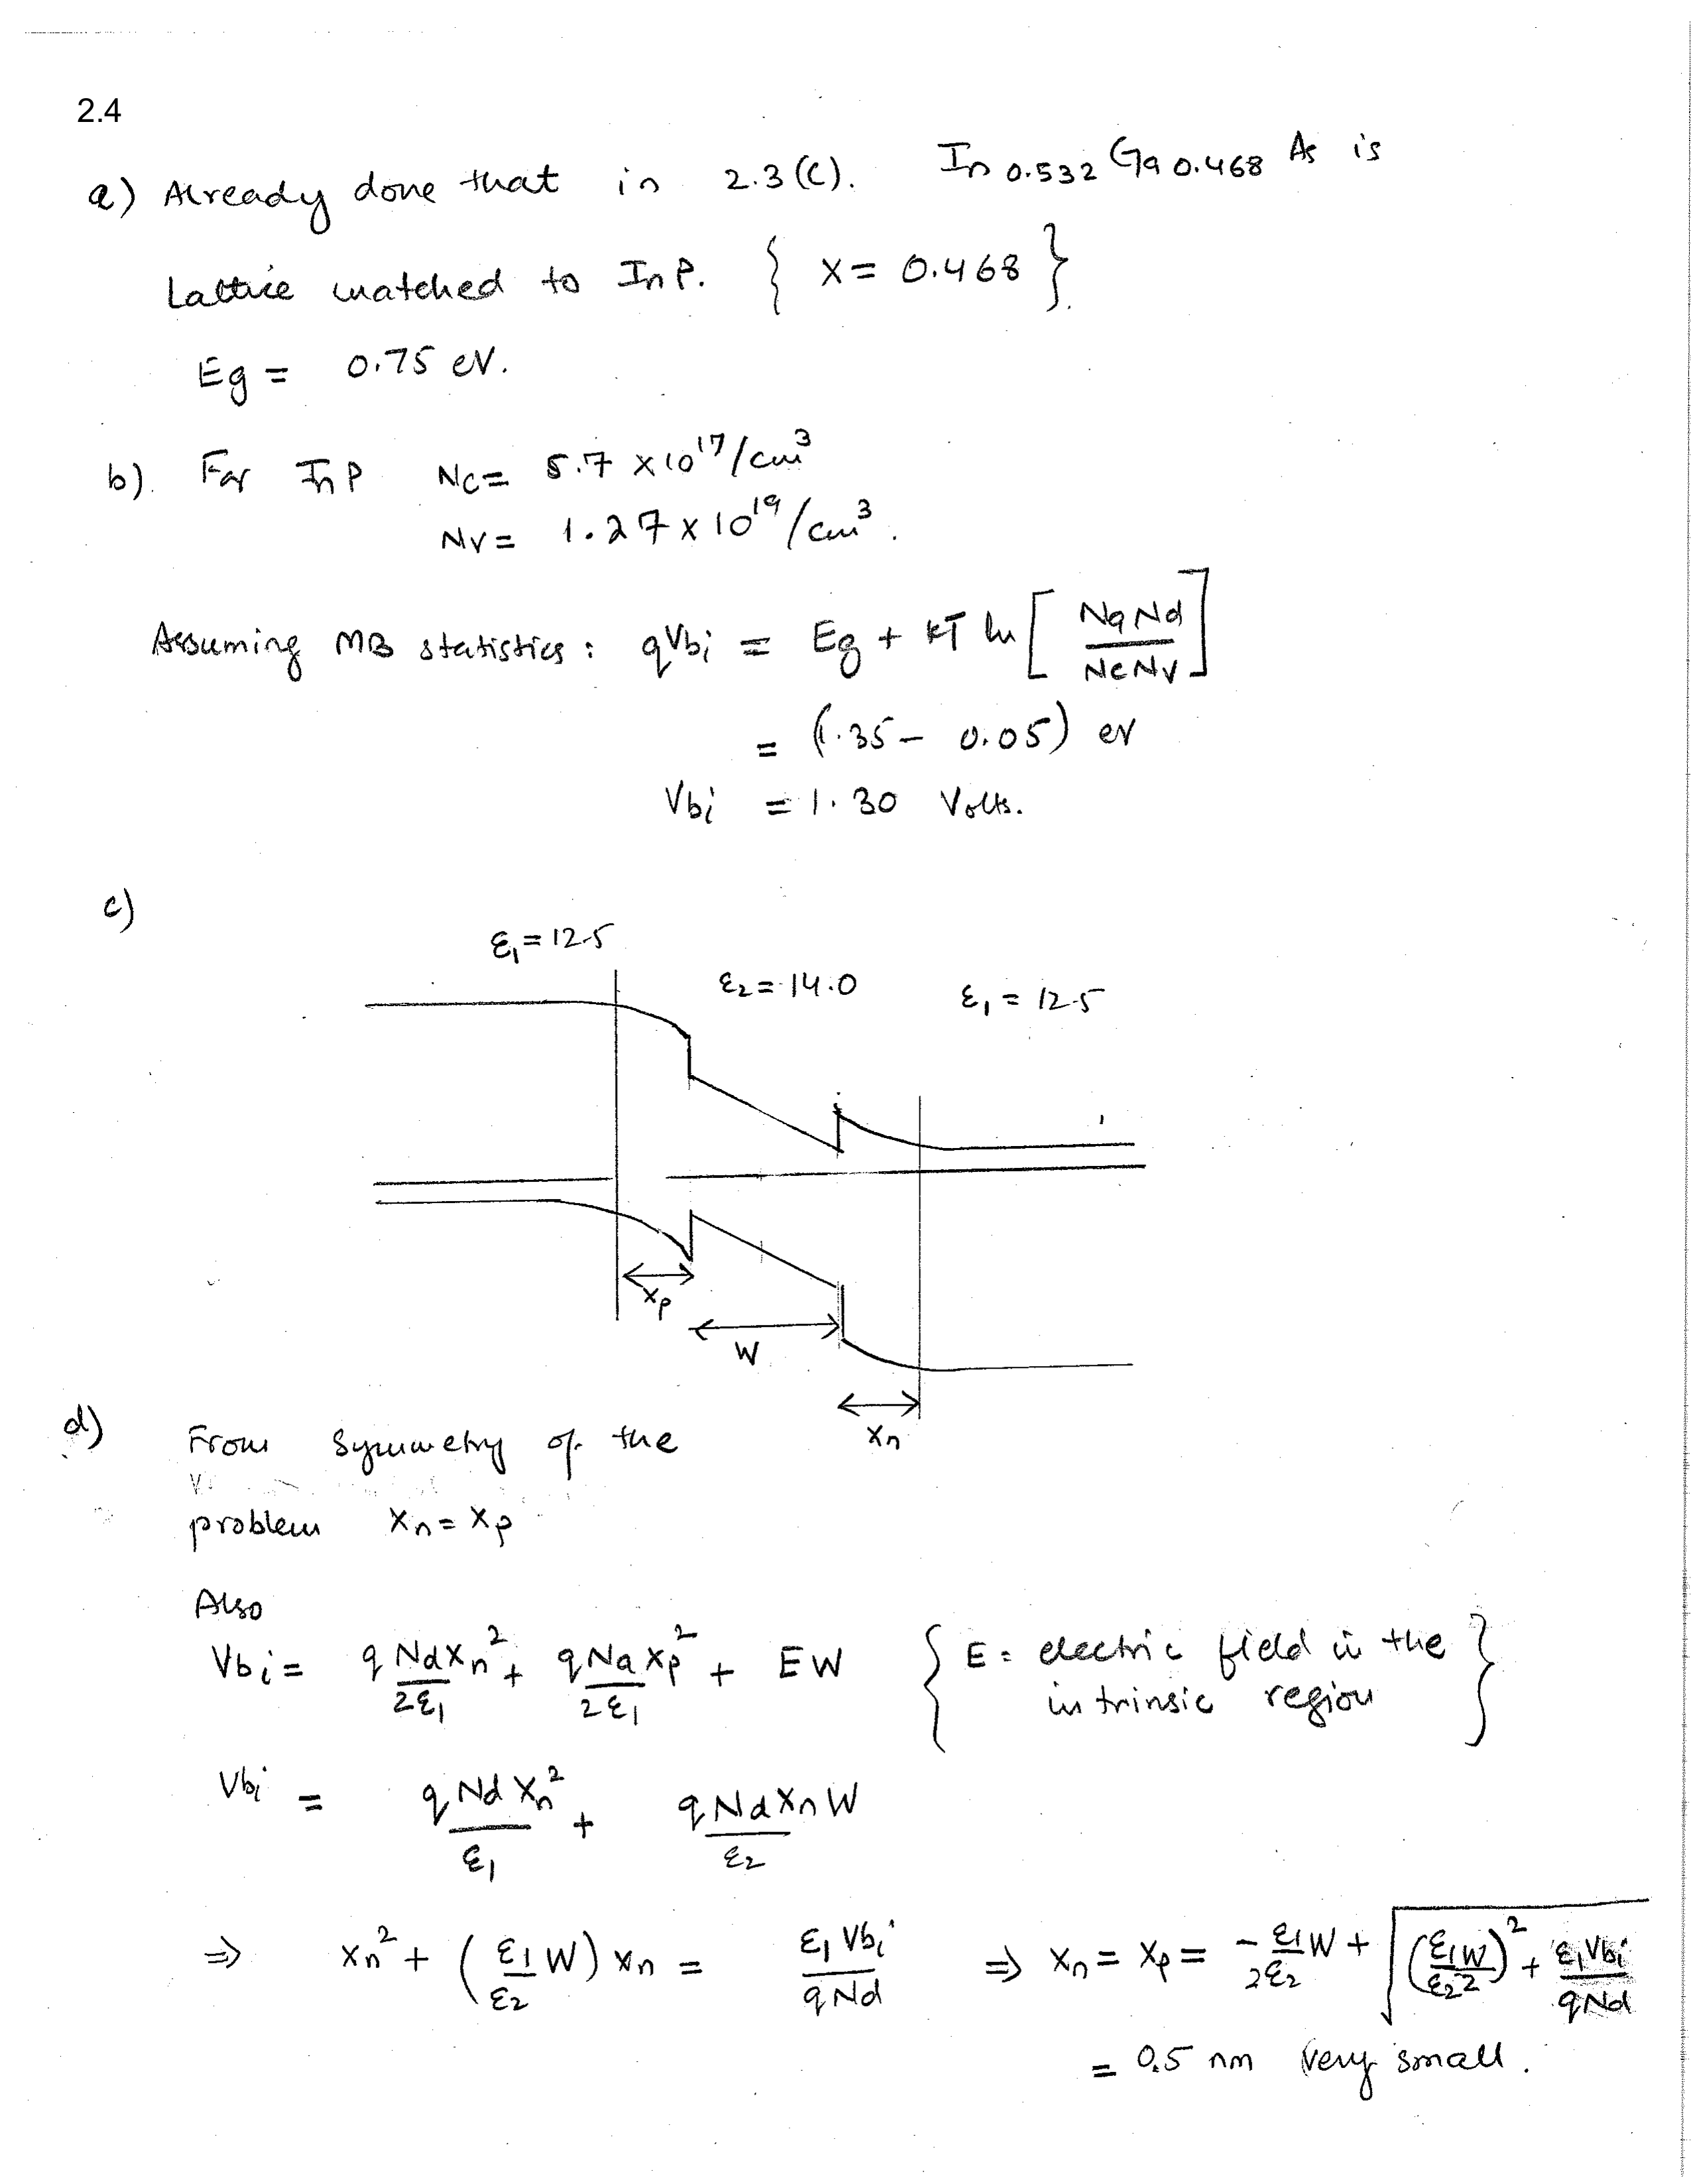 2.4
a) Already done that in 2.3(c). In 0.532 Ga 0.468 As is
Lattice matched to InP. { x = 0.468 }.
Eg = 0.75 eV.
b). For InP Nc = 5.7 × 10^17/cm^3
Nv = 1.27 × 10^19/cm^3.
Assuming MB statistics: qVbi = Eg + kT ln [ NaNd / NcNv ]
= (1.35 - 0.05) eV
Vbi = 1.30 Volts.
c)
ε1 = 12.5
ε2 = 14.0
ε1 = 12.5
xp
W
xn
d) From Symmetry of the
problem xn = xp
Also
Vbi = qNdxn^2 / 2ε1 + qNaxp^2 / 2ε1 + EW { E = electric field in the
intrinsic region }
Vbi = qNdxn^2 / ε1 + qNdxnW / ε2
⇒ xn^2 + (ε1/ε2 W) xn = ε1Vbi / qNd ⇒ xn = xp = -ε1/2ε2 W + √((ε1W / ε2 2)^2 + ε1Vbi / qNd)
= 0.5 nm very small.